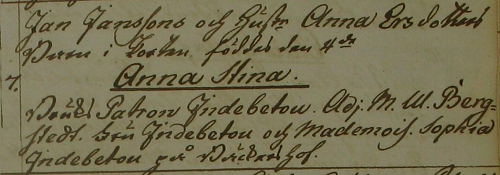 Jan Janssons och Hustr Anna Ersdotters
Barn i Torten föddes den 4de
7. Anna Stina.
Bruks Patron Indebetou. Adj. M. W. Berg-
stedt. Fru Indebetou och Mademois. Sophia
Indebetou på Bäckers hof.